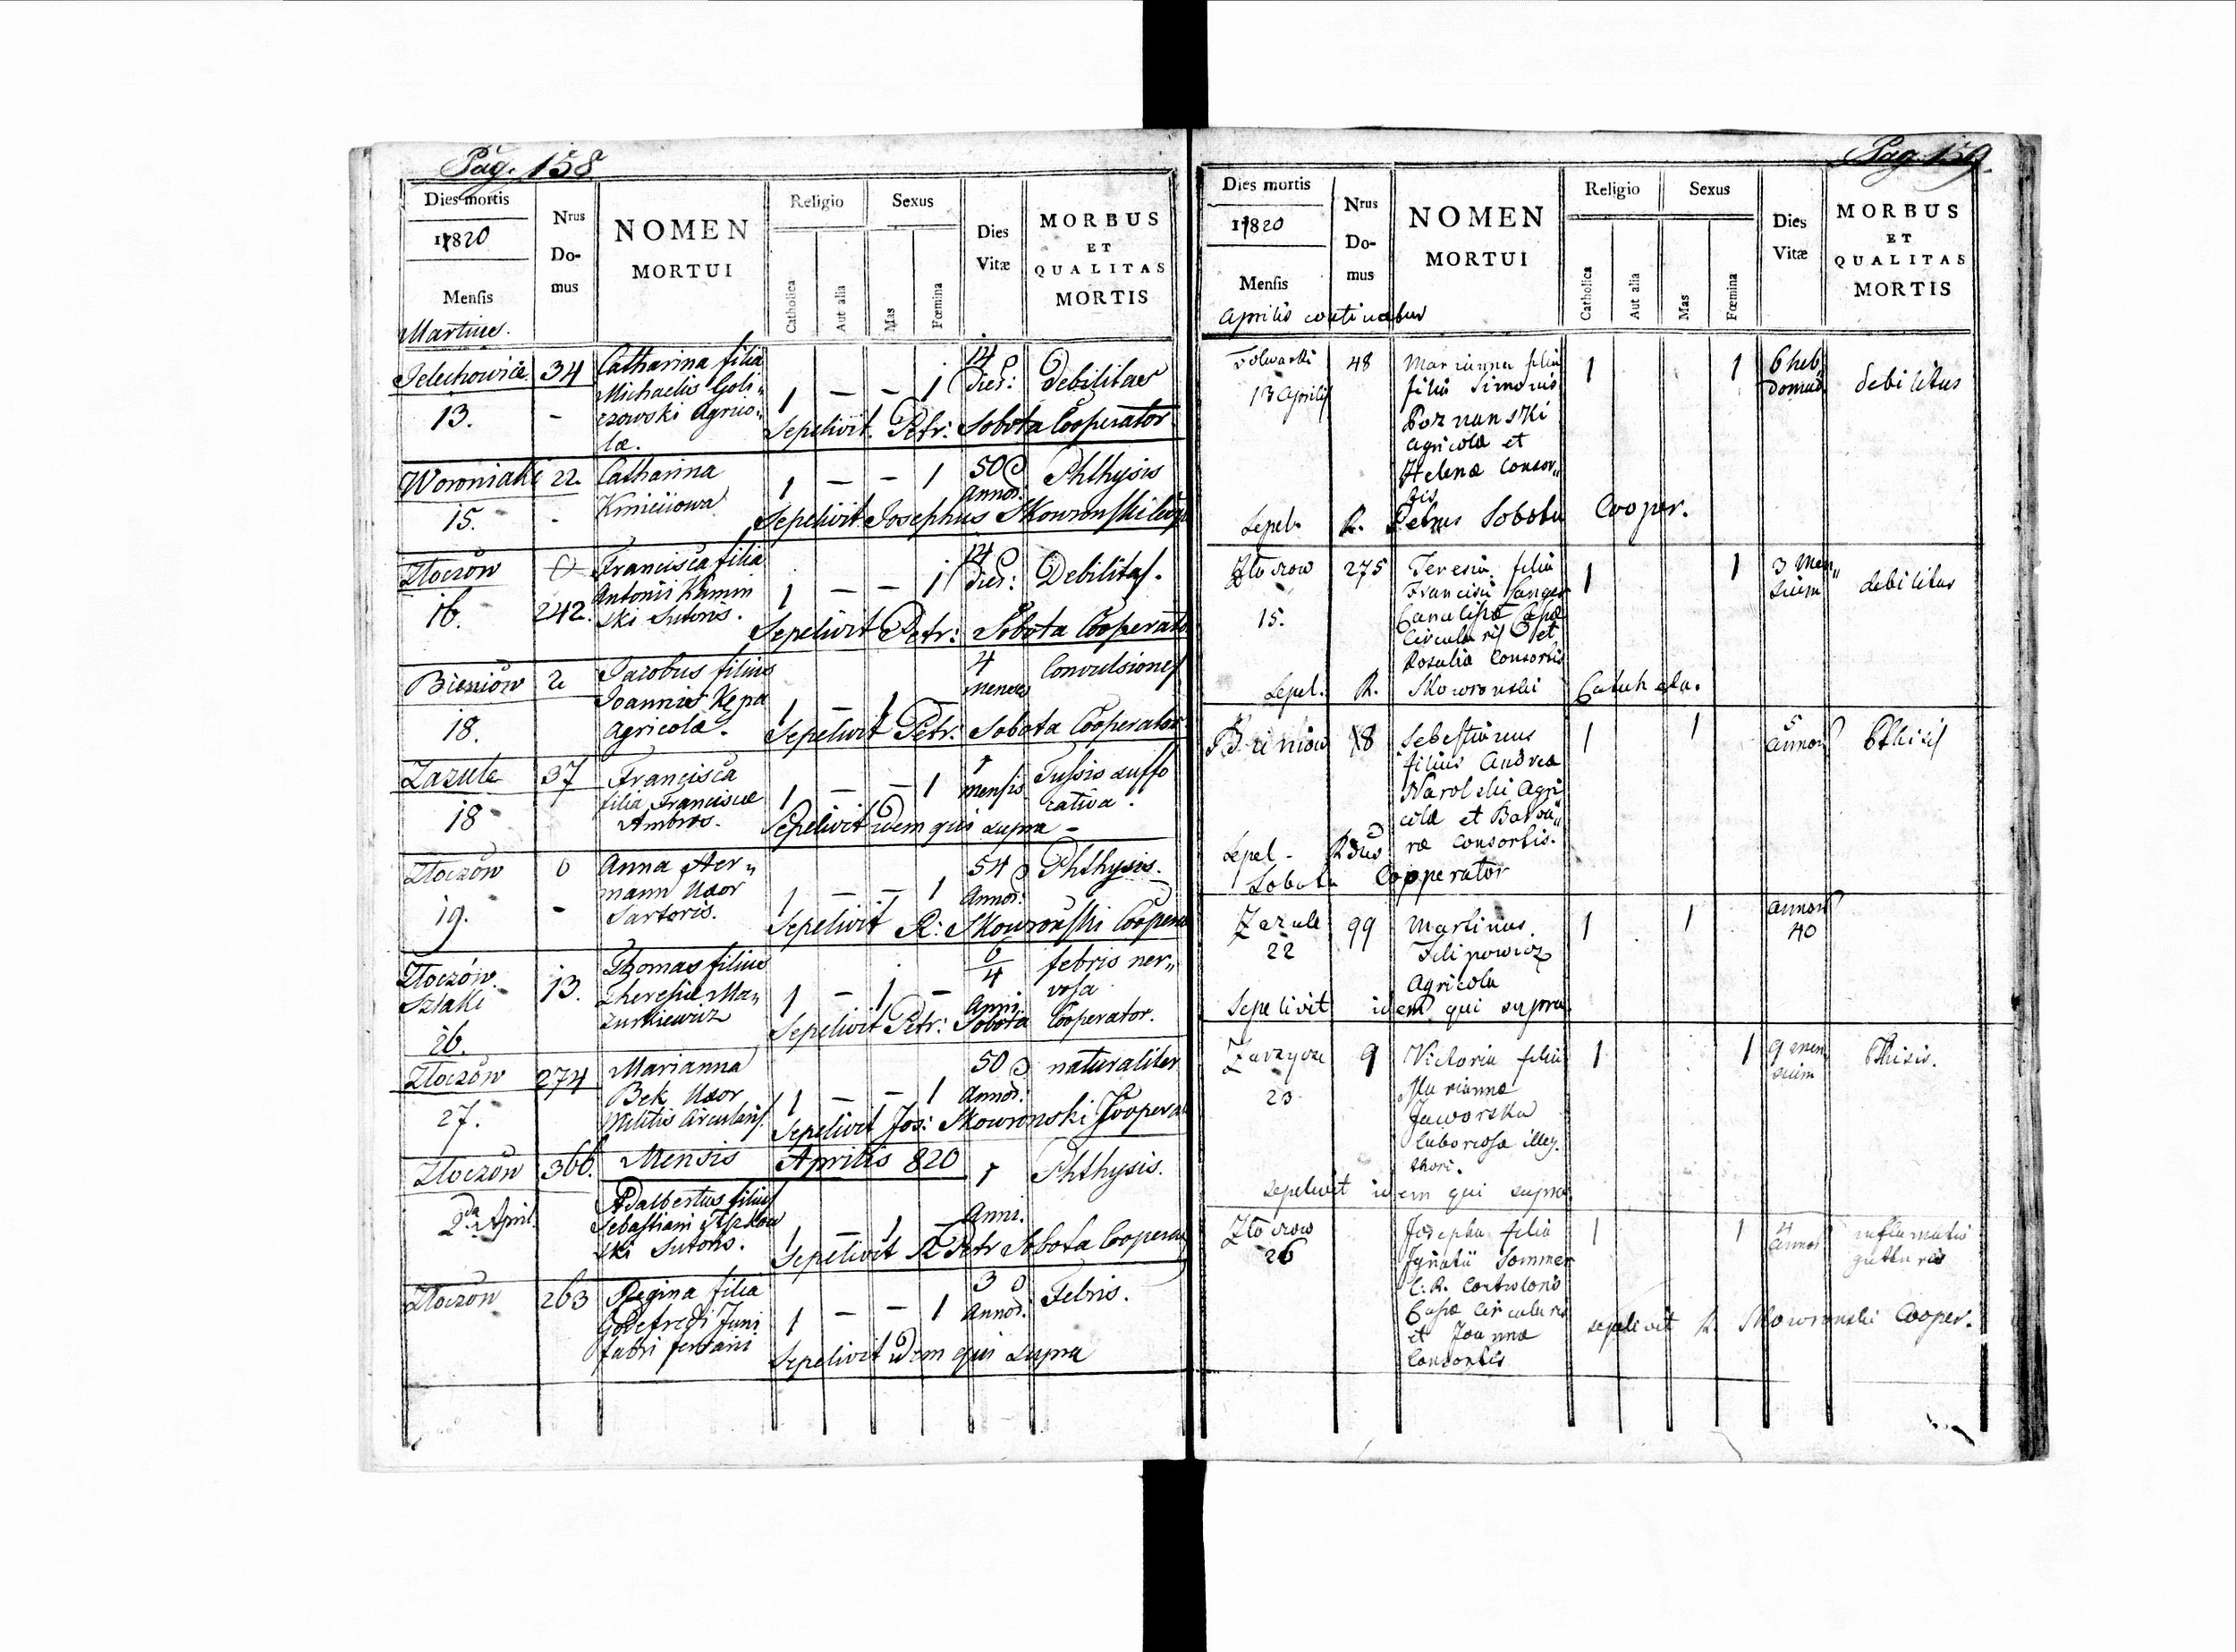 Pag. 158
Dies mortis
1820
Mensis
Martius.
Nrus
Do-
mus
NOMEN
MORTUI
Religio
Catholica
Aut alia
Sexus
Mas
Fœmina
Dies
Vitæ
MORBUS
ET
QUALITAS
MORTIS
Jelechowice 34 Catharina filia 14 Debilitas
Michaelis Goli„ 1 — — 1 Dier:
13. - czowski Agrico„
læ. Sepelivit Petr: Sobota Cooperator
Woroniaki 22. Catharina 1 — — 1 50 Phthysis
15. - Annor.
Sepelivit Josephus Skowronski
Złoczów Francisca filia 14 Debilitas.
16. 242. Antonii Kamin 1 — — 1 Dier:
ski Sutoris. Sepelivit Petr: Sobota Cooperator
Bieniów 2 Jacobus filius 4 Convulsiones
Joannis Kępa 1 — 1 — menses
18. Agricola. Sepelivit Petr: Sobota Cooperator
Zazule 37 Francisca 1 — — 1 1 Tussis suffo
18 filia Franciscæ mensis cativa.
Ambros. Sepelivit idem qui supra -
Złoczów 0 Anna Her„ 54 Phthysis.
mann Uxor 1 — — 1 Annor:
19. - Sartoris. Sepelivit R: Skowroński Coopera
Złoczów 13. Thomas filius 6/4 febris ner„
Szlaki Theresiæ Ma„ 1 — 1 — Anni vosa
26. zurkiewicz Sepelivit Petr: Sobota Cooperator.
Złoczów 274 Marianna 50 naturaliter
Bek Uxor 1 — — 1 Annor:
27. Militis Circularis. Sepelivit Jos: Skowronski Coopera
Mensis Aprilis 820
Złoczów 366. Adalbertus filius 1 Phthysis.
2da April. Sebastiani 1 — 1 — Anni.
ski Sutoris. Sepelivit R Petr Sobota Coopera
Złoczów 263 Regina filia 3 Febris.
Godefredi Juni 1 — — 1 Annor:
fabri ferrarii Sepelivit idem qui supra
Pag. 159.
Dies mortis
1820
Mensis
Aprilis continuatur
Nrus
Do-
mus
NOMEN
MORTUI
Religio
Catholica
Aut alia
Sexus
Mas
Fœmina
Dies
Vitæ
MORBUS
ET
QUALITAS
MORTIS
Folwarki 48 Marianna filia 1 1 6 heb„ debilitas
13 Aprilis filia Simonis domad
Poznanski
Agricola et
Helena Consor„
tis
Sepel. R. Petrus Sobota Cooper.
Złoczow 275 Teresia filia 1 1 3 Men„ debilitas
15. Francisci Sanger suim
Circularis et
Rosalia Consortis
Sepel. R. Skowronski
8 Sebestianus 1 1 5
filius Andrea Annor
Narolski Agri
cola et Barba„
Sepel - Rdus ra Consortis.
Sobota Cooperator
Zazule 99 Martinus 1 1 Annor
22 Filipowicz 40
Agricola
Sepelivit idem qui supra
9 Victoria filia 1 1 9 men
23 Marianna suim
Jaworska
laboriosa illeg.
thori.
Sepelivit idem qui supra
Złoczow Josepha filia 1 1 4
26 Ignatii Sommer Annor gutturis
C: R.
Circularis
et Joanna sepelivit R. Skowronski Cooper.
Consortis